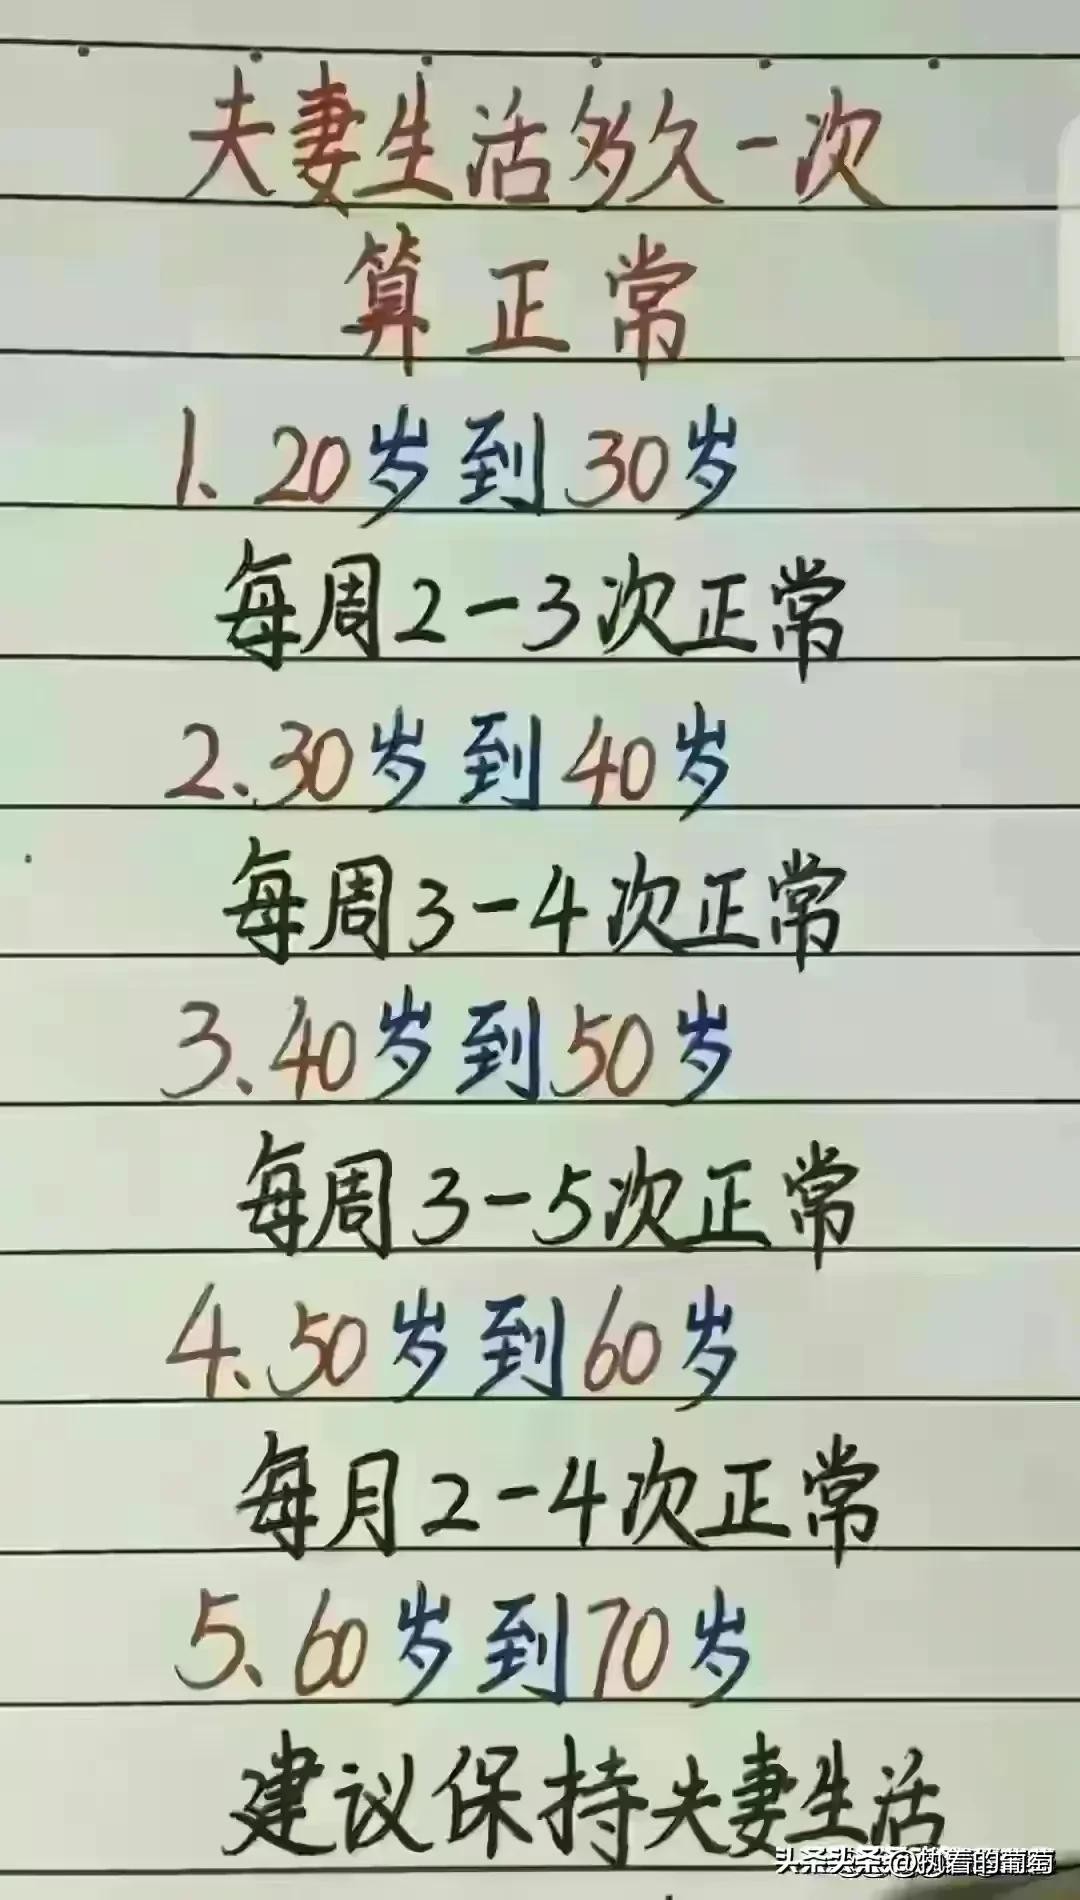 夫妻生活多久一次
算正常
1、20岁到30岁
每周2-3次正常
2、30岁到40岁
每周3-4次正常
3、40岁到50岁
每周3-5次正常
4、50岁到60岁
每月2-4次正常
5、60岁到70岁
建议保持夫妻生活
头条头条@执着的葡萄